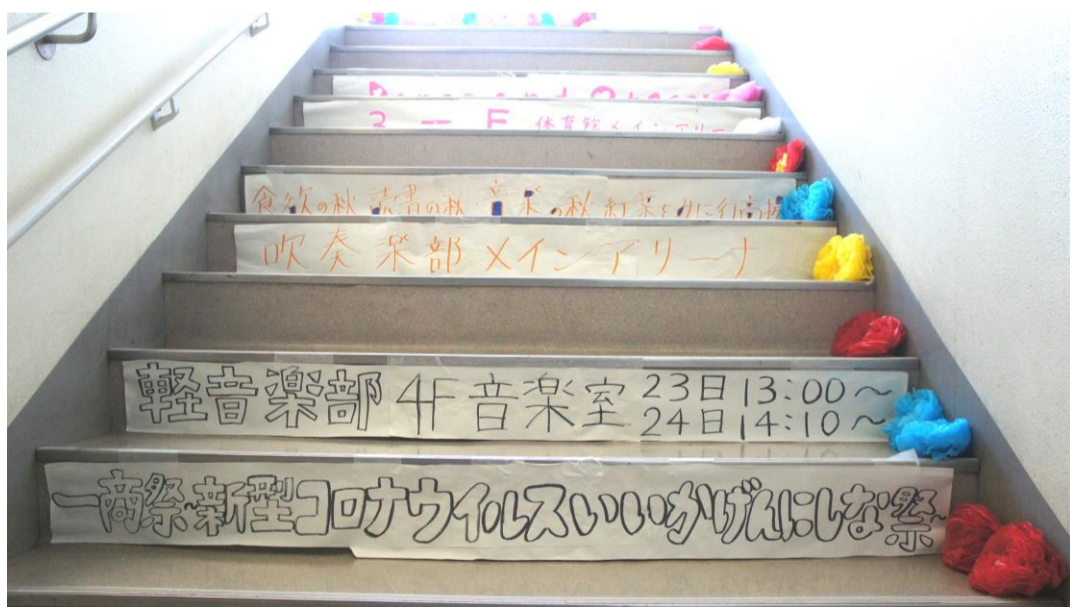 3 ー E 体育館メインアリーナ
食欲の秋 読書の秋 音楽の秋 紅葉をみに行
吹奏楽部メインアリーナ
軽音楽部 4F 音楽室 23日 13:00～
24日 14:10～
一商祭~新型コロナウイルスいいかげんにしな祭~